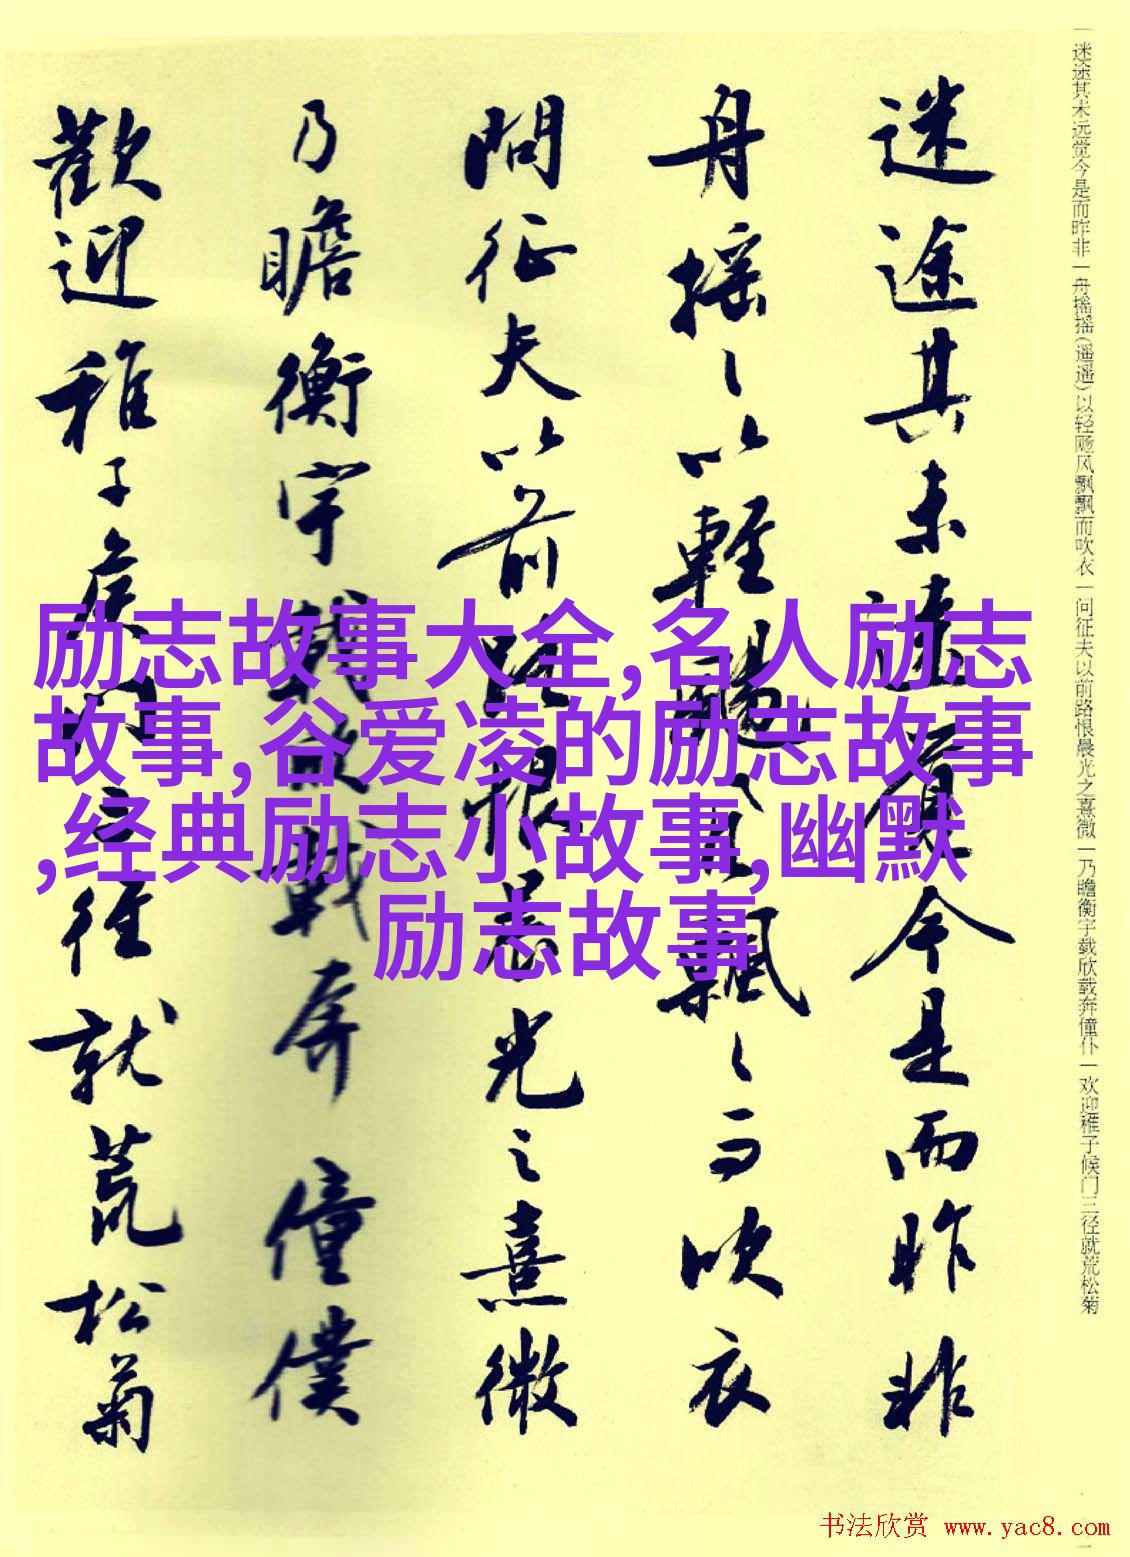 一迷途其未远觉今是而昨非一舟摇摇(遥遥)以轻飏风飘飘而吹衣一问征夫以前路恨晨光之熹微一乃瞻衡宇载欣载奔僮仆一欢迎稚子候门三径就荒松菊
迷途其未遠覺今是而昨非
舟摇〻以輕颺風飄〻而吹衣
問征夫以前路恨晨光之熹微
乃瞻衡宇載欣載奔僮僕
歡迎稚子候門三徑就荒松菊
励志故事大全,名人励志
故事,谷爱凌的励志故事
,经典励志小故事,幽默
励志故事
书法欣赏 www.yac8.com